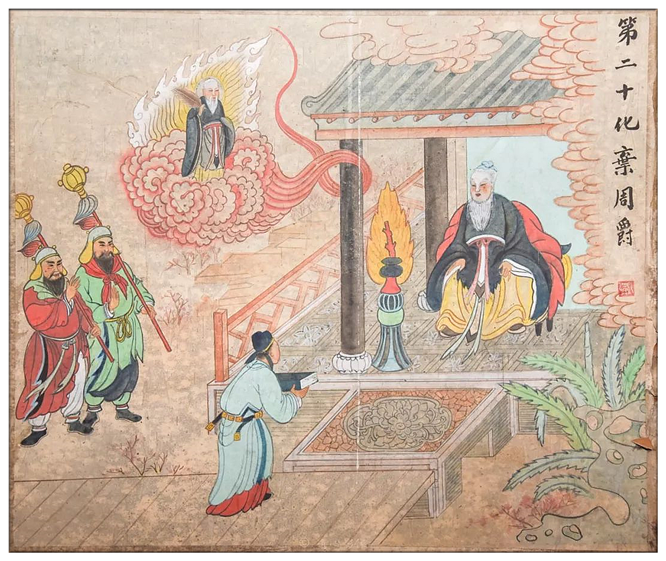 第二十化棄周爵